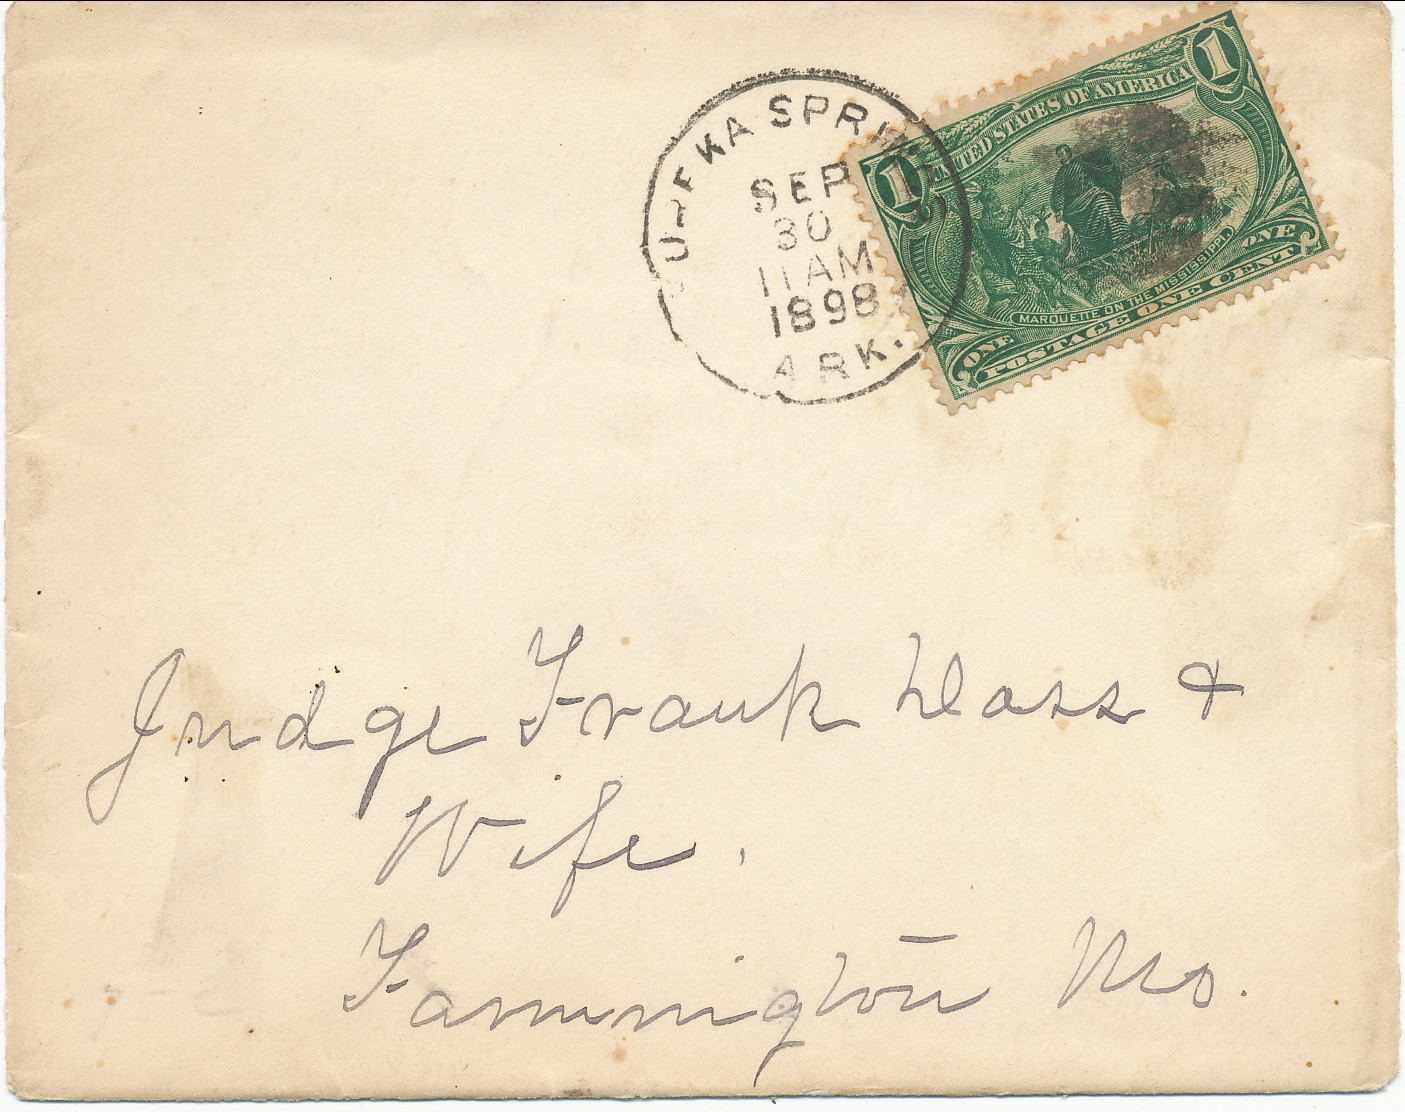 EUREKA SPRINGS
SEP
30
11 AM
1898
ARK.
1 UNITED STATES OF AMERICA 1
MARQUETTE ON THE MISSISSIPPI.
ONE POSTAGE ONE CENT ONE
Judge Frank &
Wife.
Farmington Mo.